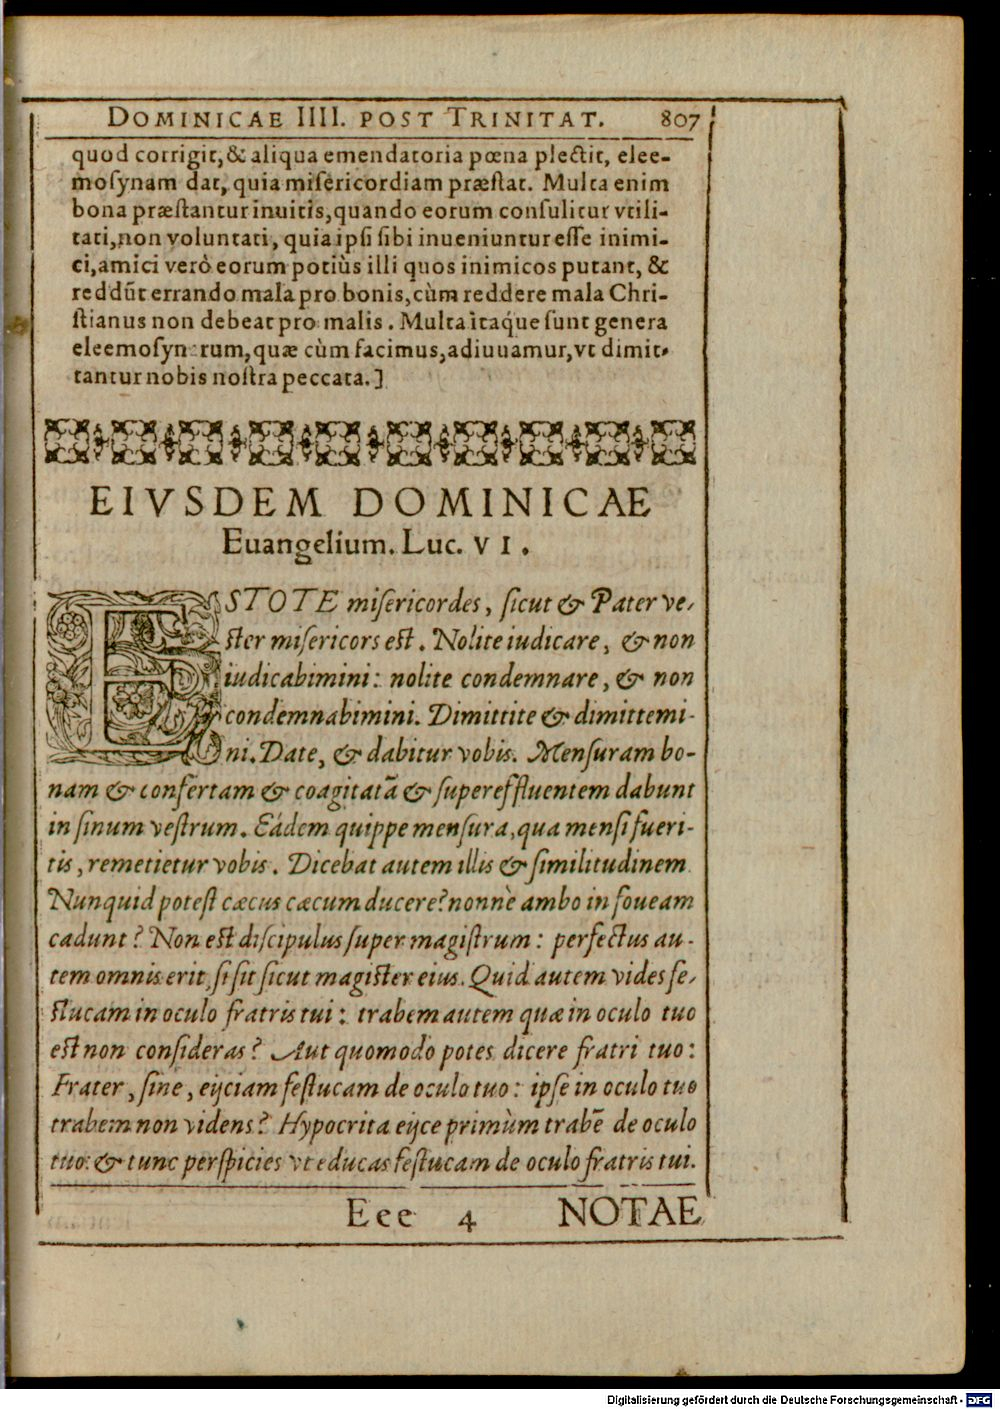 DOMINICAE IIII. POST TRINITAT. 807
quod corrigit, & aliqua emendatoria pœna plectit, elee-
mosynam dat, quia misericordiam præstat. Multa enim
bona præstantur inuitis, quando eorum consulitur vtili-
tati, non voluntati, quia ipsi sibi inueniuntur esse inimi-
ci, amici verò eorum potiùs illi quos inimicos putant, &
reddūt errando mala pro bonis, cùm reddere mala Chri-
stianus non debeat pro malis. Multa itaque sunt genera
eleemosynarum, quæ cùm facimus, adiuuamur, vt dimit-
tantur nobis nostra peccata.]
EIVSDEM DOMINICAE
Euangelium. Luc. VI.
ESTOTE misericordes, sicut & Pater ve-
ster misericors est. Nolite iudicare, & non
iudicabimini: nolite condemnare, & non
condemnabimini. Dimittite & dimittemi-
ni. Date, & dabitur vobis. Mensuram bo-
nam & confertam & coagitatā & supereffluentem dabunt
in sinum vestrum. Eádem quippe mensura, qua mensi fueri-
tis, remetietur vobis. Dicebat autem illis & similitudinem
Nunquid potest cæcus cæcum ducere? nonnè ambo in foueam
cadunt? Non est discipulus super magistrum: perfectus au-
tem omnis erit, si sit sicut magister eius. Quid autem vides fe-
stucam in oculo fratris tui: trabem autem quæ in oculo tuo
est non consideras? Aut quomodò potes dicere fratri tuo:
Frater, sine, eijciam festucam de oculo tuo: ipse in oculo tuo
trabem non videns? Hypocrita eijce primùm trabē de oculo
tuo: & tunc perspicies vt educas festucam de oculo fratris tui.
Eee 4 NOTAE
Digitalisierung gefördert durch die Deutsche Forschungsgemeinschaft - DFG